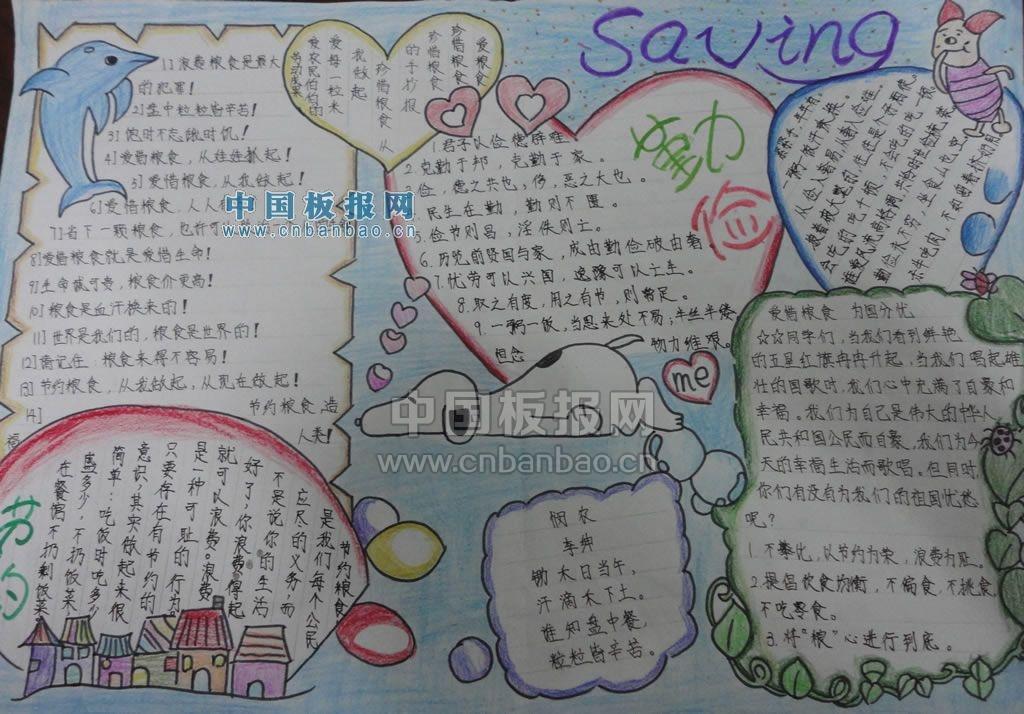 Saving
1] 浪费粮食是最大
的犯罪!
2] 盘中粒粒皆辛苦!
3] 饱时不忘饿时饥!
4] 爱惜粮食,从娃娃抓起!
5] 爱惜粮食,从我做起!
6] 爱惜粮食,人人
7] 省下一颗粮食,也许
8] 爱惜粮食就是爱惜生命!
9] 生命诚可贵,粮食价更高!
10] 粮食是血汗换来的!
11] 世界是我们的,粮食是世界的!
12] 需记在:粮食来得不容易!
13] 节约粮食,从我做起,从现在做起!
14]
节约粮食 造
福
人类!
爱粮食
珍惜粮食
珍惜粮食
的手抄报
珍惜粮食 从
我做起
爱每一粒米
爱农民伯伯的
劳动成果
勤
俭
1.君子以俭德辟难
2.克勤于邦,克勤于家。
3.俭,德之共也,侈,恶之大也。
民生在勤,勤则不匮。
5.俭节则昌,淫佚则亡。
6.历览前贤国与家,成由勤俭破由奢。
7.忧劳可以兴国,逸豫可以亡生。
8.取之有度,用之有节,则常足。
9.一粥一饭,当思来处不易;半丝半缕
恒念
物力维艰。
me
爱惜粮食 为国分忧
☆☆同学们,当我们看到鲜艳
的五星红旗冉冉升起,当我们唱起雄
壮的国歌时,我们心中充满了自豪和
幸福。我们为自己是伟大的中华人
民共和国公民而自豪,我们为今
天的幸福生活而歌唱。但同时,
你们有没有为我们的祖国忧愁
呢?
1.不攀比,以节约为荣,浪费为耻。
2.提倡饮食均衡,不偏食,不挑食,
不吃零食。
3.将“粮”心进行到底。
节约
节约粮食
是我们每个公民
应尽的义务,而
不是说你的生活
好了,你浪费得起
就可以浪费。浪费
是一种可耻的行为。
只要存在有节约的
意识,其实做起来很
简单:吃饭时吃多少
盛多少,不扔饭菜
在餐馆不扔剩饭菜
悯农
李绅
锄禾日当午,
汗滴禾下土。
谁知盘中餐,
粒粒皆辛苦。
中国板报网
www.cnbanbao.cn
中国板报网
www.cnbanbao.cn